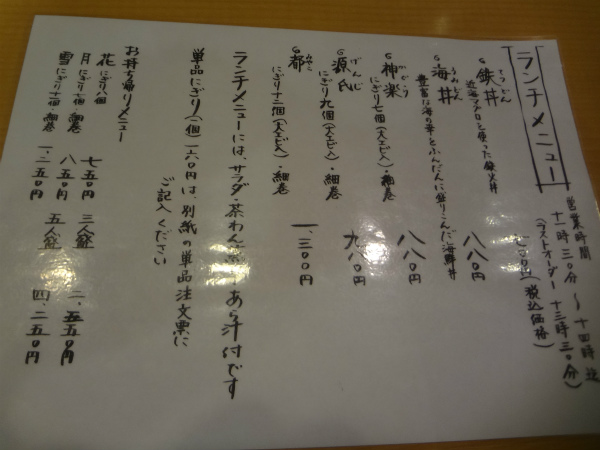 ランチメニュー
営業時間
十一時三〇分〜十四時迄
(ラストオーダー 十三時三〇分)
(税込価格)
てつどん
鉄丼
近海マグロを使った鉄火丼
八八〇円
うみどん
海丼
豊富な海の幸をふんだんに盛りこんだ海鮮丼
かぐら
神楽
にぎり七個(大エビ入)・細巻
八八〇円
げんじ
源氏
にぎり九個(大エビ入)・細巻
九八〇円
みやこ
都
にぎり十二個(大エビ入)・細巻
一、三〇〇円
ランチメニューには、サラダ・茶わん蒸・あら汁付です
単品にぎり(一個)一六〇円は、別紙の単品注文票に
ご記入ください
お持ち帰りメニュー
花 にぎり八個 七五〇円 三人盆 二、五五〇円
月 にぎり七個 細巻 八五〇円
雪 にぎり十一個 細巻 一、二五〇円 五人盆 四、二五〇円